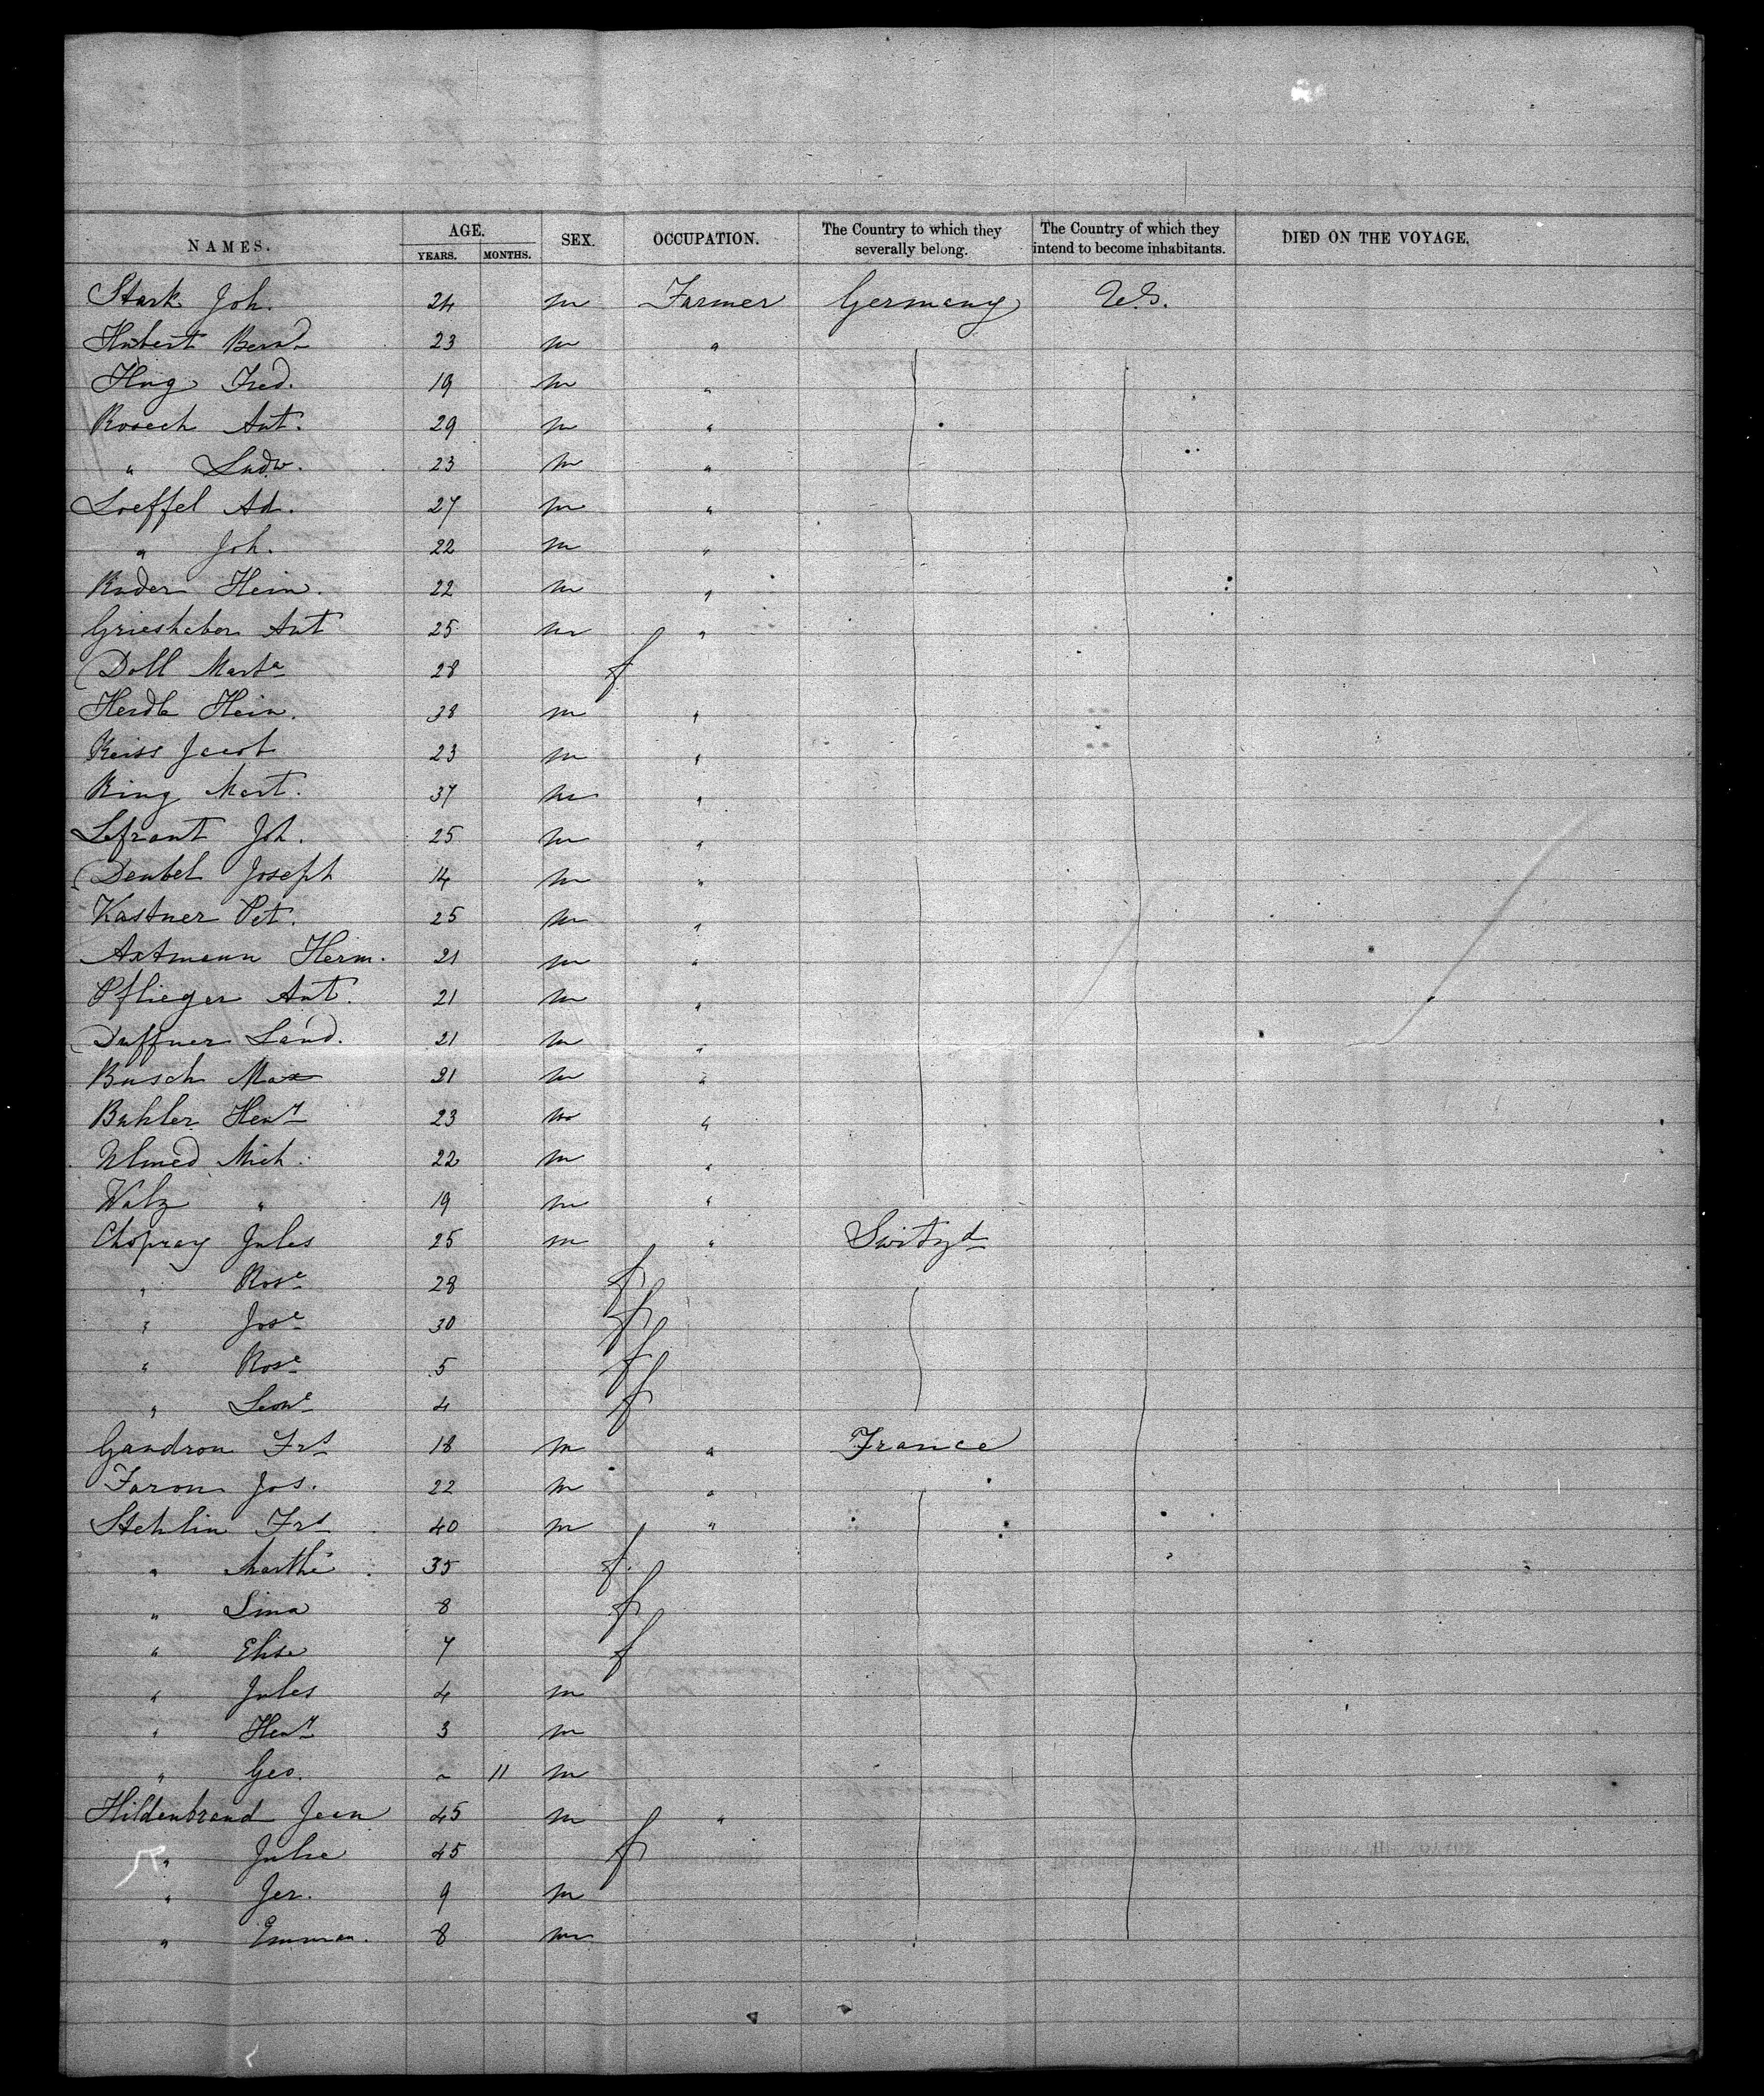 NAMES. AGE. YEARS. MONTHS. SEX. OCCUPATION. The Country to which they severally belong. The Country of which they intend to become inhabitants. DIED ON THE VOYAGE.
Stark Joh. 24 m Farmer Germany U.S.
Hubert Bernd 23 m "
Hug Fred. 19 m "
Roesch Ant. 29 m "
" Ludw. 23 m "
Loeffel Ad. 27 m "
" Joh. 22 m "
Ruder Hein. 22 m "
Grieshaber Ant 25 m "
Doll Marta 28 f
Herdle Hein. 38 m "
Reiss Jacob 23 m "
Ring Mart. 37 m "
Lefrant Joh. 25 m "
Deubel Joseph 14 m "
Kastner Pet. 25 m "
Axtmann Herm. 21 m "
Pflieger Ant. 21 m "
Duffner Land. 21 m "
Busch Max 21 m "
Buhler Heny 23 m "
Mich. 22 m "
Walz " 19 m "
Chopray Jules 25 m " Switzd
" Rose 28 f
" Jose 30 f
" Rose 5 f
" Leone 4 f
Gandron Frs 18 m " France
Faron Jos. 22 m "
Stehlin Frs 40 m "
" Marthe 35 f
" Lina 8 f
" Elise 7 f
" Jules 4 m
" Heny 3 m
" Geo. " 11 m
Hildenbrand Jean 45 m "
" Julie 45 f
" Jer. 9 m
" Emman. 8 m